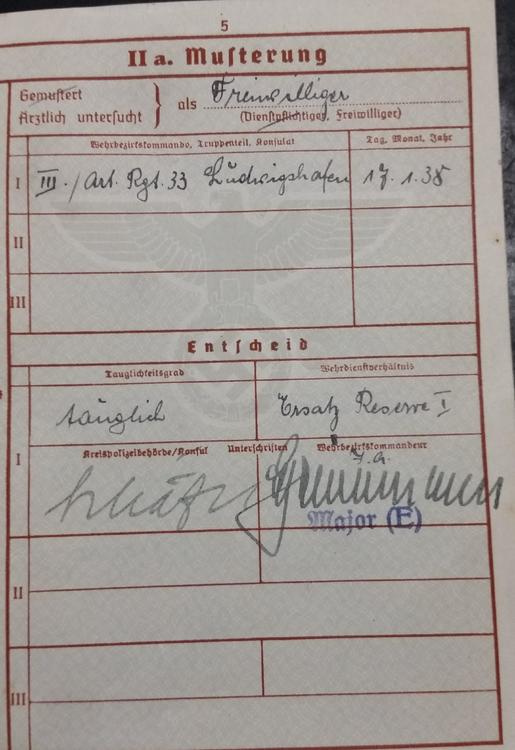 5
II a. Musterung
Gemustert
Ärztlich untersucht } als Freiwilliger
(Dienstpflichtiger, Freiwilliger)
Wehrbezirkskommando, Truppenteil, Konsulat Tag, Monat, Jahr
I III./Art. Rgt. 33 Ludwigshafen 17.1.38
II
III
Entscheid
Tauglichkeitsgrad Wehrdienstverhältnis
tauglich Ersatz Reserve I
I Kreispolizeibehörde/Konsul Unterschriften Wehrbezirkskommandeur
Major (E)
II
III